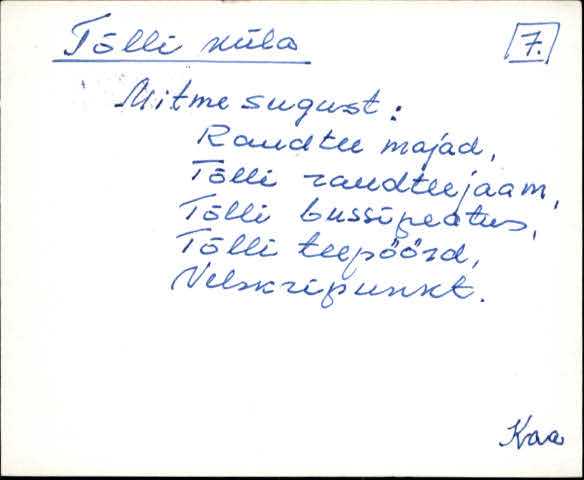 Tõlli küla
7.
Mitme sugust:
Raudtee majad,
Tõlli raudteejaam,
Tõlli bussipeatus,
Tõlli teepöörd,
Velskripunkt.
Kaa